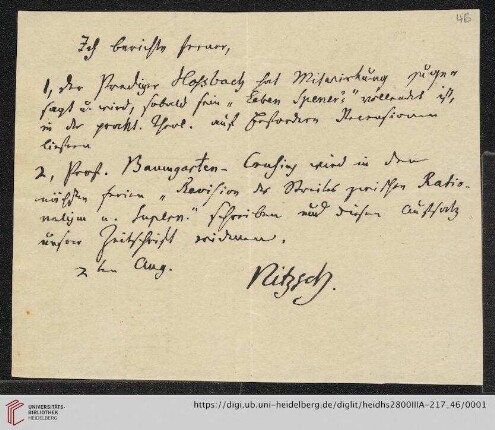 46
Ich berichte ferner,
1, der Prediger Hoßbach hat Mitwirkung zuge-
sagt u. wird, sobald sein „Leben Spener's“ vollendet ist,
in der prakt. Theol. auf Erfordern Recensionen
liefern
2, Prof. Baumgarten-Crusius wird in den
nächsten Ferien „Revision des Streites zwischen Ratio-
nalism u. Supern.“ schreiben und diesen Aufsatz
unsrer Zeitschrift widmen.
2ten Aug.
Nitzsch.
UNIVERSITÄTS-
BIBLIOTHEK
HEIDELBERG
https://digi.ub.uni-heidelberg.de/diglit/heidhs2800IIIA-217_46/0001